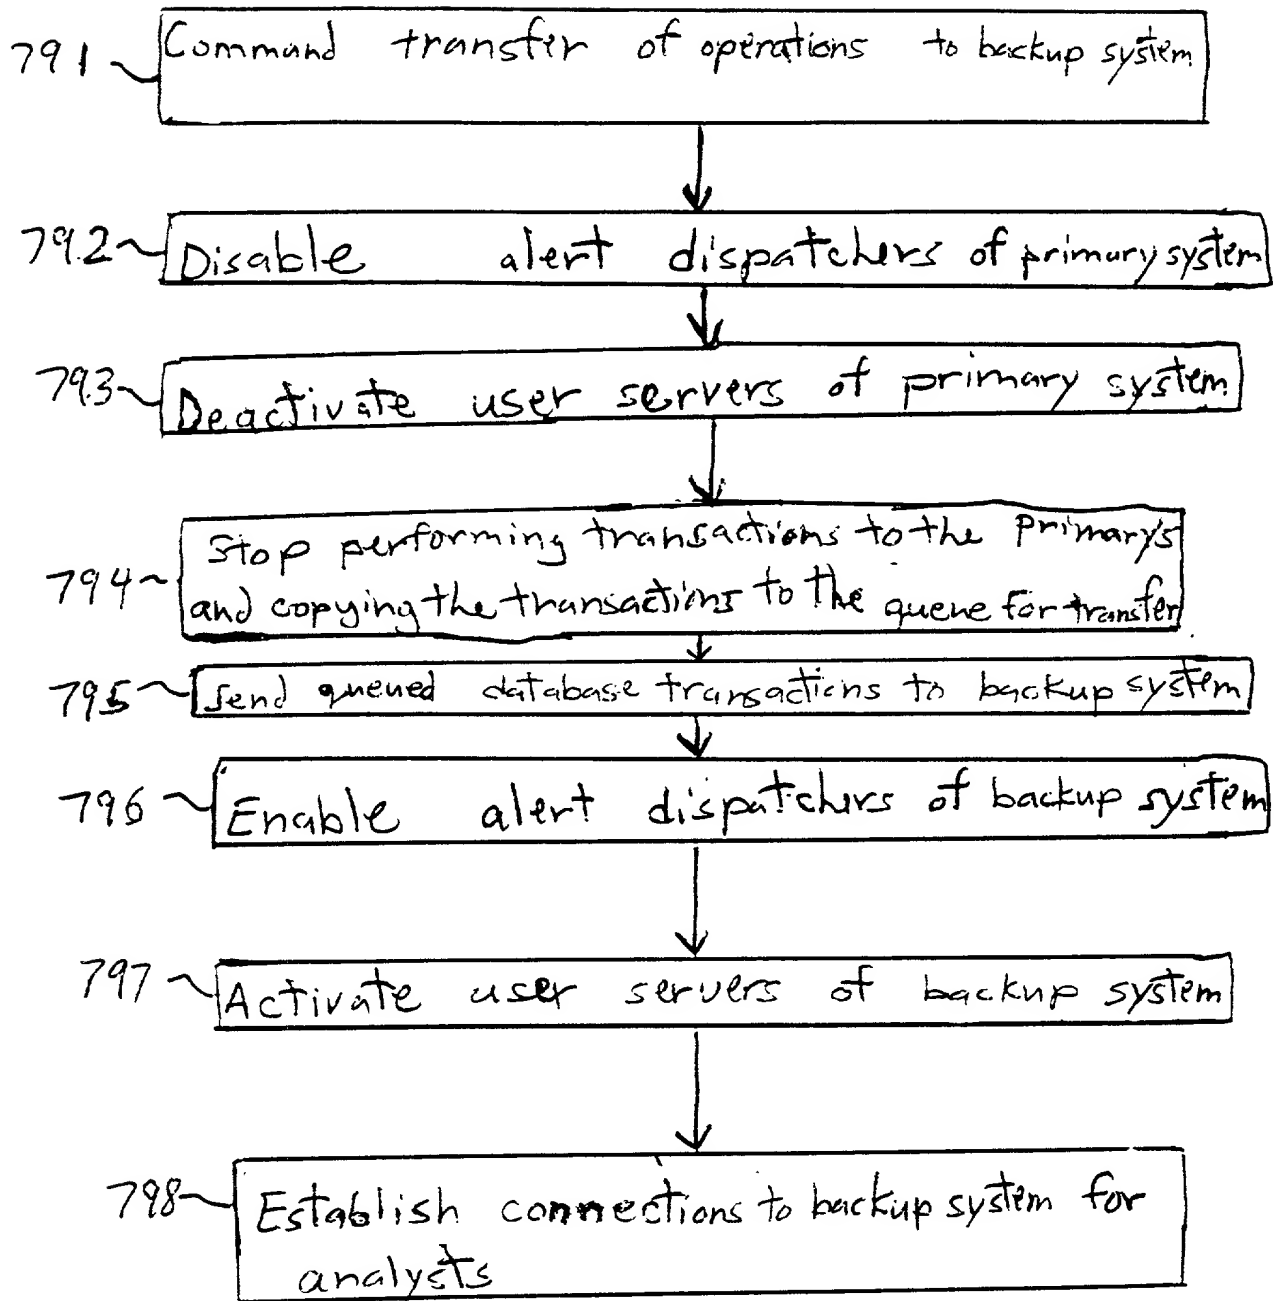 791 Command transfer of operations to backup system
792 Disable alert dispatchers of primary system
793 Deactivate user servers of primary system
794 Stop performing transactions to the primary's
and copying the transactions to the queue for transfer
795 Send queued database transactions to backup system
796 Enable alert dispatchers of backup system
797 Activate user servers of backup system
798 Establish connections to backup system for
analysts